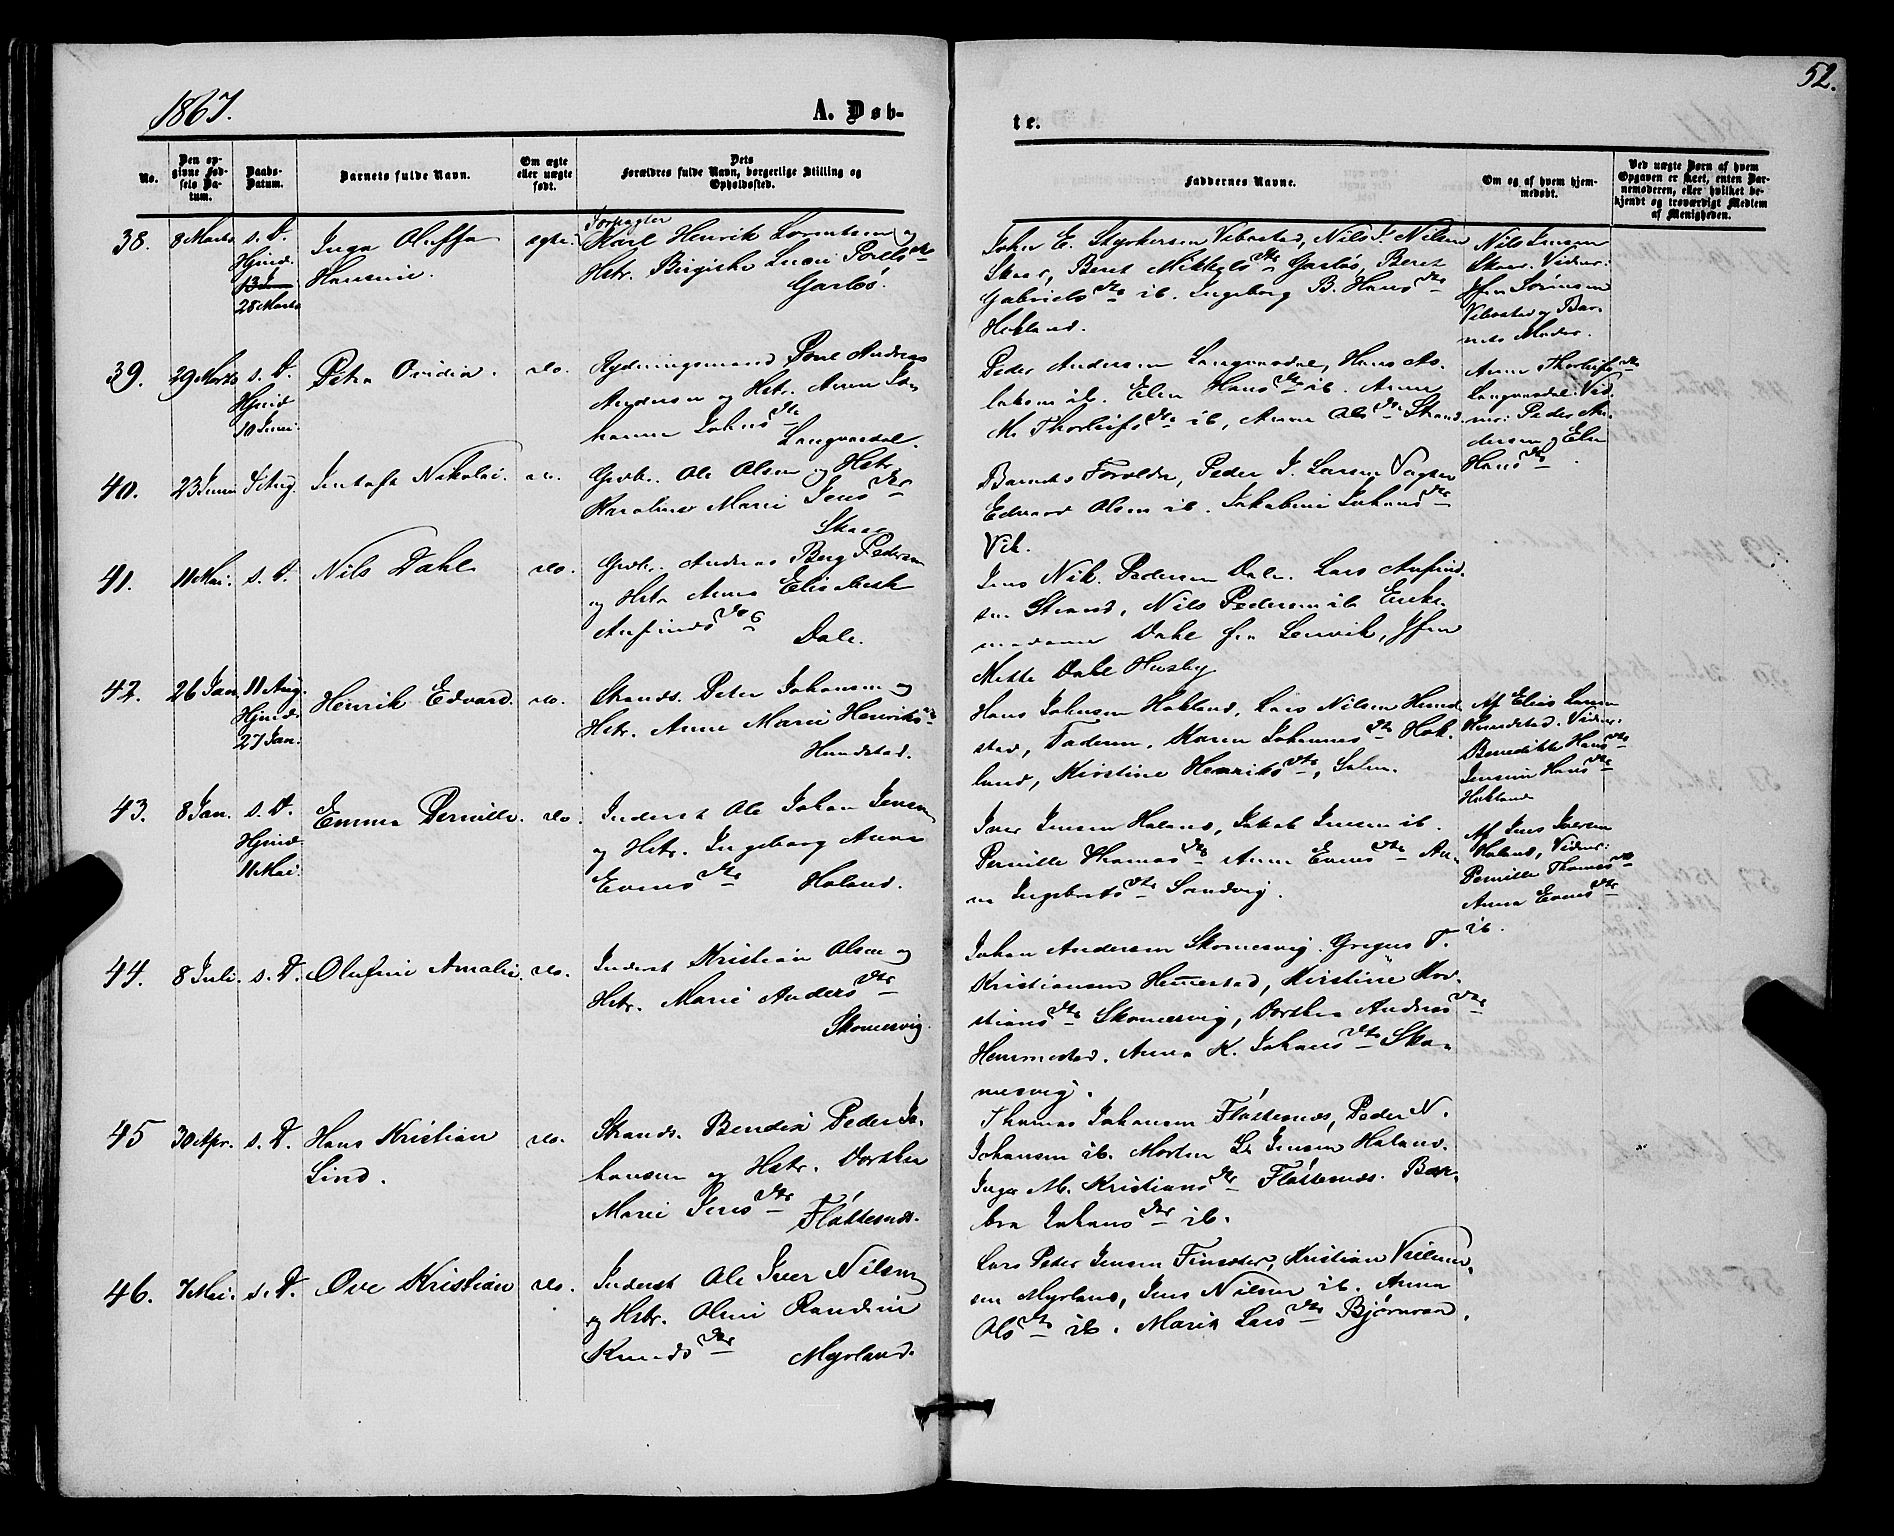 52.
1867.
A. Døb-
te.
No.
Den op-
givne Fød-
sels Da-
tum.
Daabs-
Datum.
Barnets fulde Navn.
Om ægte
eller uægte
født.
Dets
Forældres fulde Navn, borgerlige Stilling og
Opholdssted.
Faddernes Navne.
Om og af hvem hjem-
medøbt.
Ved uægte Børn af hvem
Opgaven er skeet, enten Bar-
nemoderen, eller hvilket be-
kjendt og troværdigt Medlem
af Menigheden.
38.
8 Marts
s. D.
Hjmd.
28 Marts
Inga Oluffa
Hansine.
ægte.
Forpagter
Karl Henrik Lorentsen og
Hstr.
Garsløs.
John E. Styrkersen Vibostad, Nils P. Nilsen
Skar, Beret Mikkelsdtr Garsløs, Beret
Gabrielsdtr ib. Ingeborg B. Hansdtr
Hokland.
Nils Jensen
Skar. Vidner:
Jfru Sørensen
Vibostad og Bar-
nets Moder.
39.
29 Marts
s. D.
Hjmd.
10 Juni.
Petra Ovidia.
do.
Rydningsmand Poul Andreas
Andersen og Hstr. Anna Jo-
hanna Johnsdtr
Langvasdal.
Peder Andersen Langvasdal, Hans As-
laksen ib. Elen Hansdtr ib. Anne
M. Thorleifsdtr ib, Anne Olsdtr Strand
Anne Thorleifsdtr
Langvasdal. Vid-
ner: Peder An-
dersen og Elen
Hansdtr.
40.
23 Juni
4 Aug.
Jentoft Nikolai.
do.
Grdb. Ole Olsen og Hstr.
Karoline Marie Jensdtr
Skar
Barnets Forældre, Peder J. Larsen Vagten
Edvard Olsen ib. Jakobine Johansdtr
Vik.
41.
11 Mai.
s. D.
Nils Dahl
do.
Grdb. Andreas Berg Pedersen
og Hstr Anna Elisabeth
Anfindsdtr
Dale.
Jens Nik. Pedersen Dale. Lars Anfind-
sen Strand, Nils Pedersen ib Enke-
madame Dahl fra Lenvik, Jfru
Mette Dahl Husby
42.
26 Jan.
11 Aug.
Hjmd.
27 Jan.
Henrik Edvard.
do.
Strands. Peter Johansen og
Hstr. Anne Marie Henriksdtr
Hundstad.
Hans Johnsen Hokland, Lars Nilsen Hund-
stad, Faderen, Karen Johannesdtr Hok-
land, Kirstine Henriksdtr, Salen.
Af Elias Larsen
Hundstad. Vidner:
Benedikte Hansdtr
Jensine Hansdtr
Hokland
43.
8 Jan.
s. D.
Hjmd.
11 Mai.
Emma Pernille.
do.
Inderst Ole Johan Jensen
og Hstr. Ingeborg Anna
Evensdtr Haland.
Iver Jensen Haland, Jakob Jensen ib.
Pernille Thomasdtr Anne Evensdtr An-
na Ingebretsdtr Sandvig.
Af Jens Iversen
Haland, Vidner:
Pernille Thomasdtr
Anna Evensdtr
ib.
44.
8 Juli.
s. D.
Olufine Amalie.
do.
Inderst Kristian Olsen og
Hstr. Marie Andersdtr
Skomesvig.
Johan Andersen Skomesvig. Gregus T.
Kristiansen Hemestad, Kirstine Kri-
stiansdtr Skomesvig, Dorthea Andreasdtr
Hemmestad. Anna K. Johansdtr Sko-
mesvig.
45
30 Apr.
s. D.
Hans Kristian
Lind.
do.
Strands. Bendix Peder Jo-
hansen og Hstr. Dorthea
Marie Jensdtr
Flåttenæs.
Thomas Johansen Flåttenæs, Peder N.
Johansen ib. Morten L. Jensen Haland.
Inga M. Kristiansdtr Flåttenæs. Bar-
bra Johansdtr ib.
46.
7 Mai.
s. D.
Ove Kristian
do.
Inderst Ole Iver Nilsen
og Hstr. Oline Randine
Knudsdtr Myrland.
Lars Peder Jensen Finsæter, Kristian Villum-
sen Myrland, Jens Nilsen ib. Anna
Olsdtr ib. Maria Larsdtr Bjørnraa.